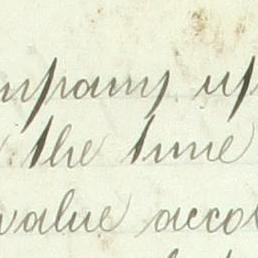 mpany up
the time
value acco